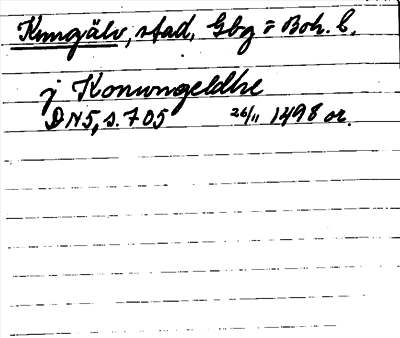 Kungälv, stad, Gbg o Boh. l.
j Konungeldhe
DN5, s. 705 26/11 1498 or.